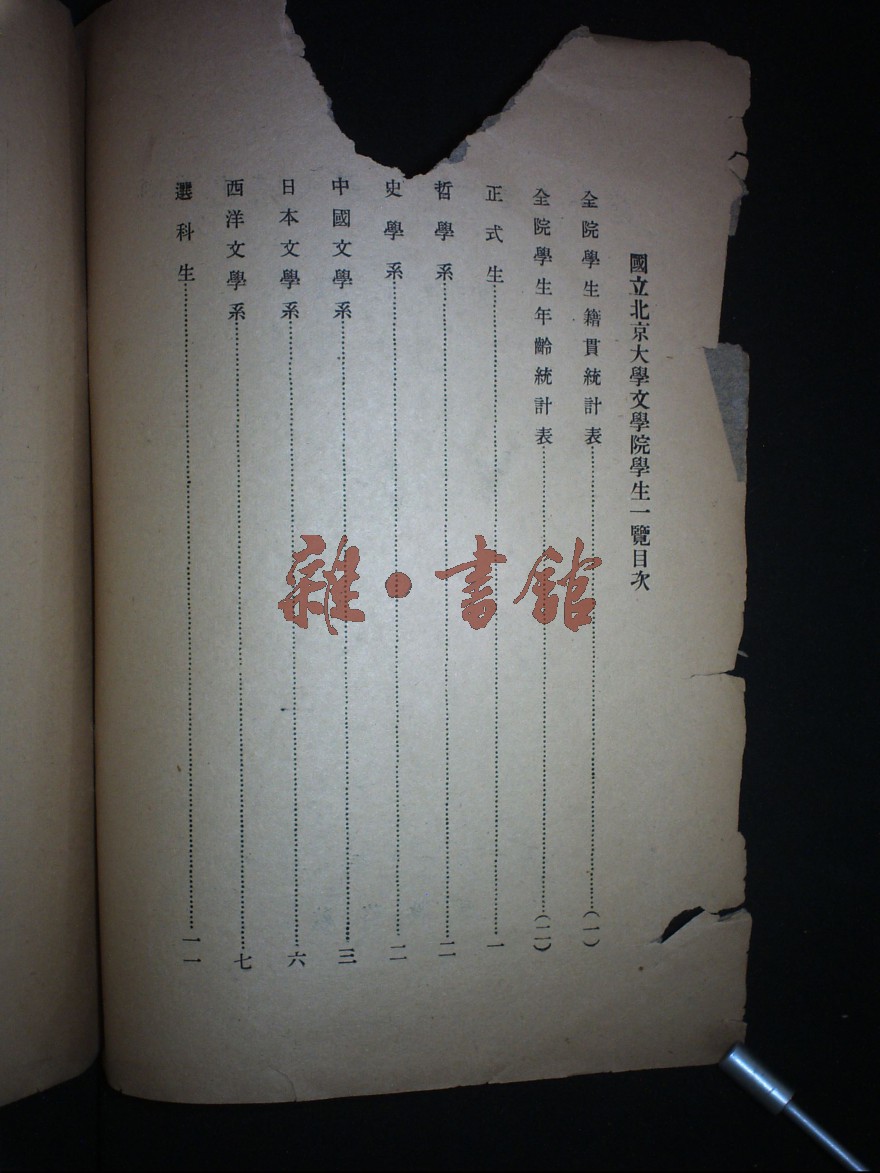 國立北京大學文學院學生一覽目次
全院學生籍貫統計表……(一)
全院學生年齡統計表……(二)
正式生……一
哲學系……二
史學系……二
中國文學系……三
日本文學系……六
西洋文學系……七
選科生……一一
雜·書館